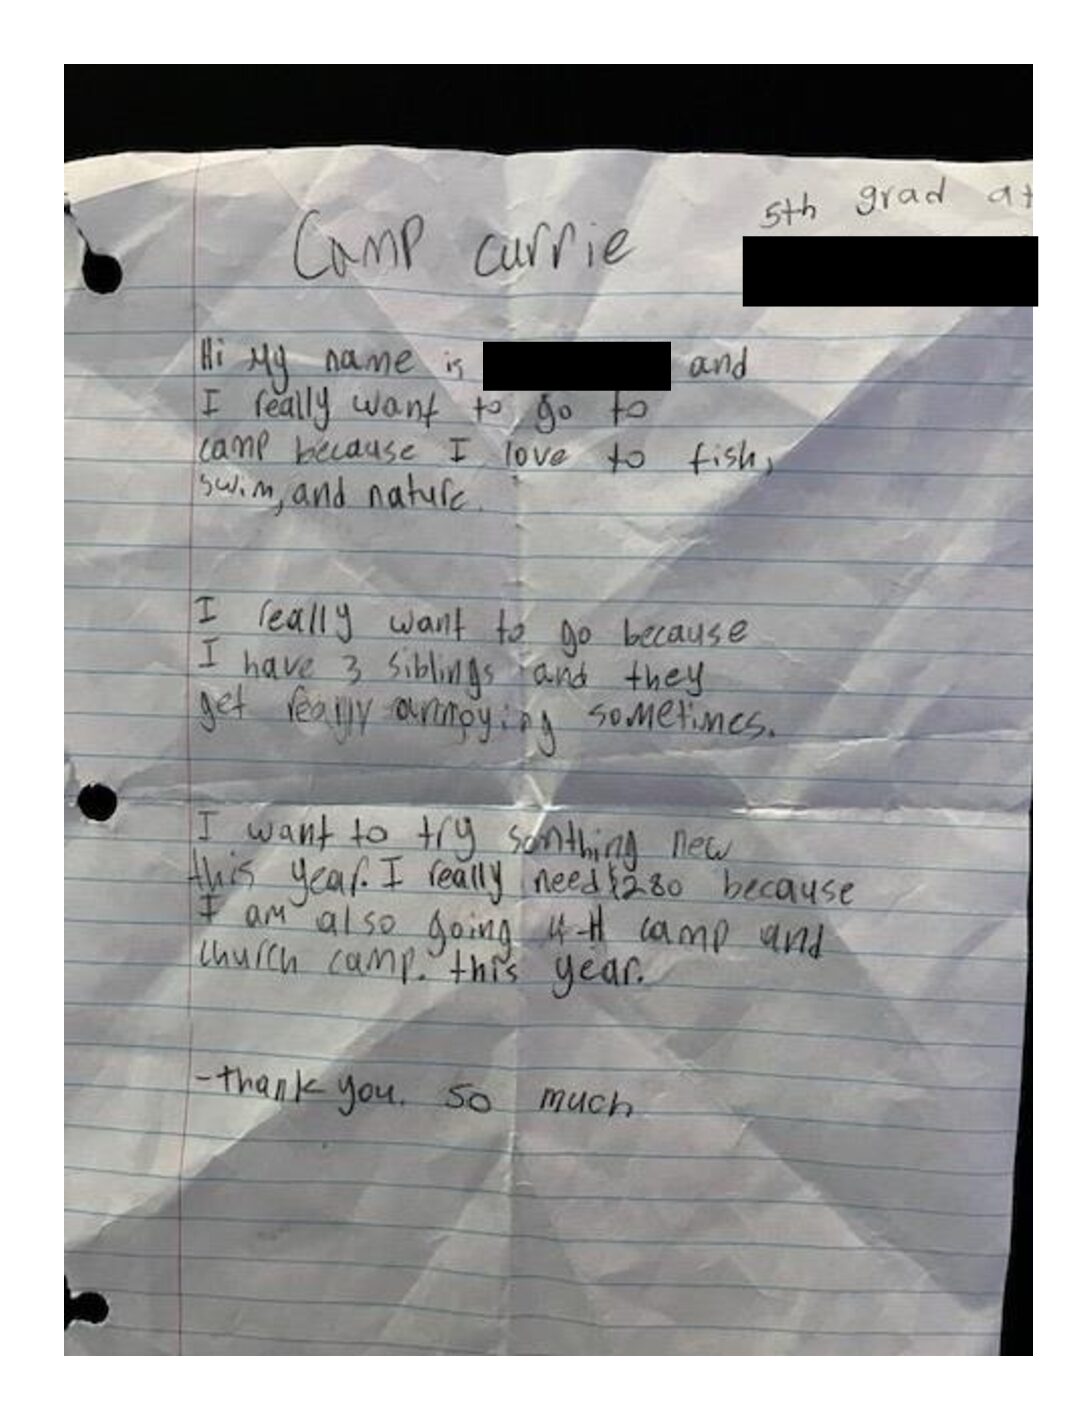 5th grad at
Camp currie
Hi My name is and
I really want to go to
camp because I love to fish,
swim, and nature.
I really want to go because
I have 3 siblings and they
get really annoying sometimes.
I want to try somthing new
this year. I really need $280 because
I am also going 4-H camp and
church camp. this year.
-thank you. so much